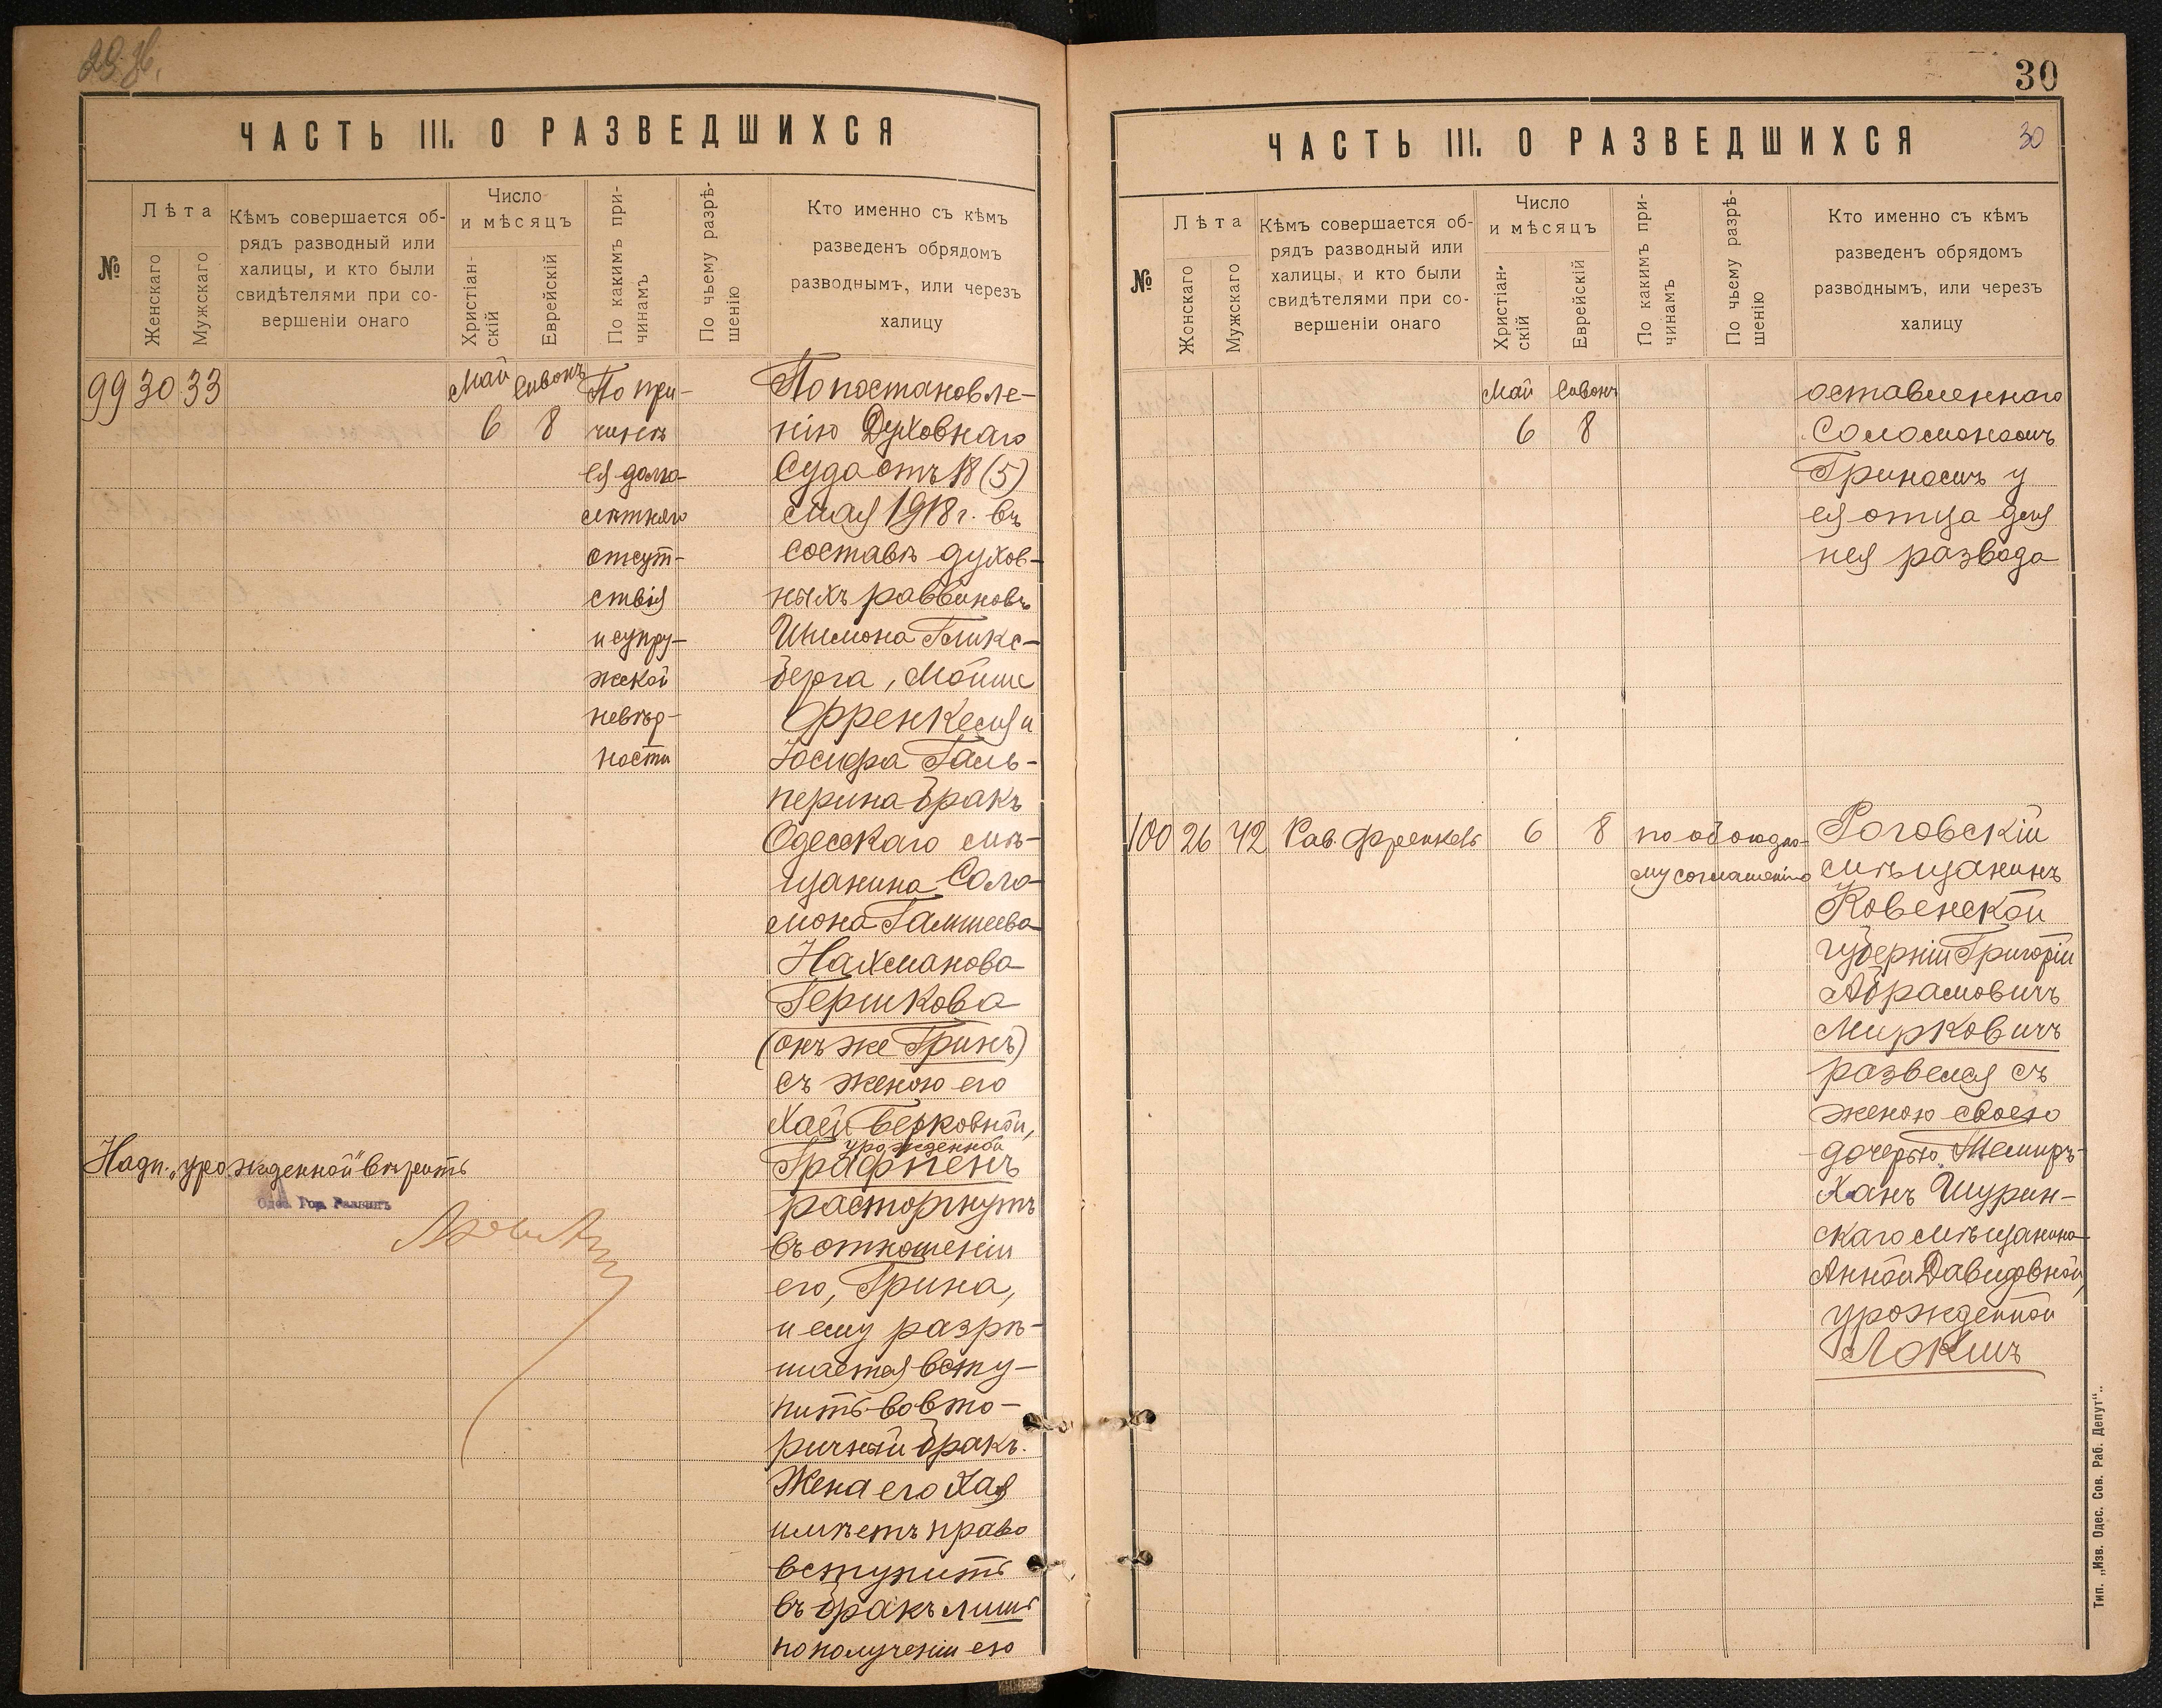 ЧАСТЬ III. О РАЗВЕДШИХСЯ
№
Лѣта
Женскаго
Мужскаго
Кѣмъ совершается об-
рядъ разводный или
халицы, и кто были
свидѣтелями при со-
вершеніи онаго
Число
и мѣсяцъ
Христіан-
скій
Еврейскій
По какимъ при-
чинамъ
По чьему разрѣ-
шенію
Кто именно съ кѣмъ
разведенъ обрядомъ
разводнымъ, или черезъ
халицу
99 30 33
Май Сивонъ
6 8
По при-
чинѣ
ея долго-
лѣтняго
отсут-
ствія
и супру-
жеской
невѣр-
ности
По постановле-
нію Духовнаго
Суда отъ 18 (5)
мая 1918 г. въ
составѣ духов-
ныхъ раввиновъ
Шимона Гликс-
берга, Мойше
Френкеля и
Іосифа Галь-
перина бракъ
Одесскаго мѣ-
щанина Соло-
мона
Нахманова
Гершкова
(онъ же Гринъ)
съ женою его
Хаей Берковной,
урожденной
Графпенъ
расторгнутъ
въ отношеніи
его, Грина,
и ему разрѣ-
шается всту-
пить во вто-
ричный бракъ.
Жена его Хая
имѣетъ право
вступить
въ бракъ лишь
по полученіи ею
Надп. „урожденной" вѣрить
Одес. Гор. Раввинъ
30
30
ЧАСТЬ III. О РАЗВЕДШИХСЯ
№
Лѣта
Жонскаго
Мужскаго
Кѣмъ совершается об-
рядъ разводный или
халицы, и кто были
свидѣтелями при со-
вершеніи онаго
Число
и мѣсяцъ
Христіан-
скій
Еврейскій
По какимъ при-
чинамъ
По чьему разрѣ-
шенію
Кто именно съ кѣмъ
разведенъ обрядомъ
разводнымъ, или черезъ
халицу
Май Сивонъ
6 8
оставленнаго
Соломономъ
Гриномъ у
ея отца для
нея развода
100 26 42 Рав. Френкель 6 8
по обоюдно-
му соглашенію
Роговскій
мѣщанинъ
Ковенской
губерніи Григорій
Абрамовичъ
Мирковичъ
развелся съ
женою своею
дочерью Темиръ-
Ханъ Шурин-
скаго мѣщанина
Анной Давидовной,
урожденной
Локшъ
Тип. „Изв. Одес. Сов. Раб. Депут“.